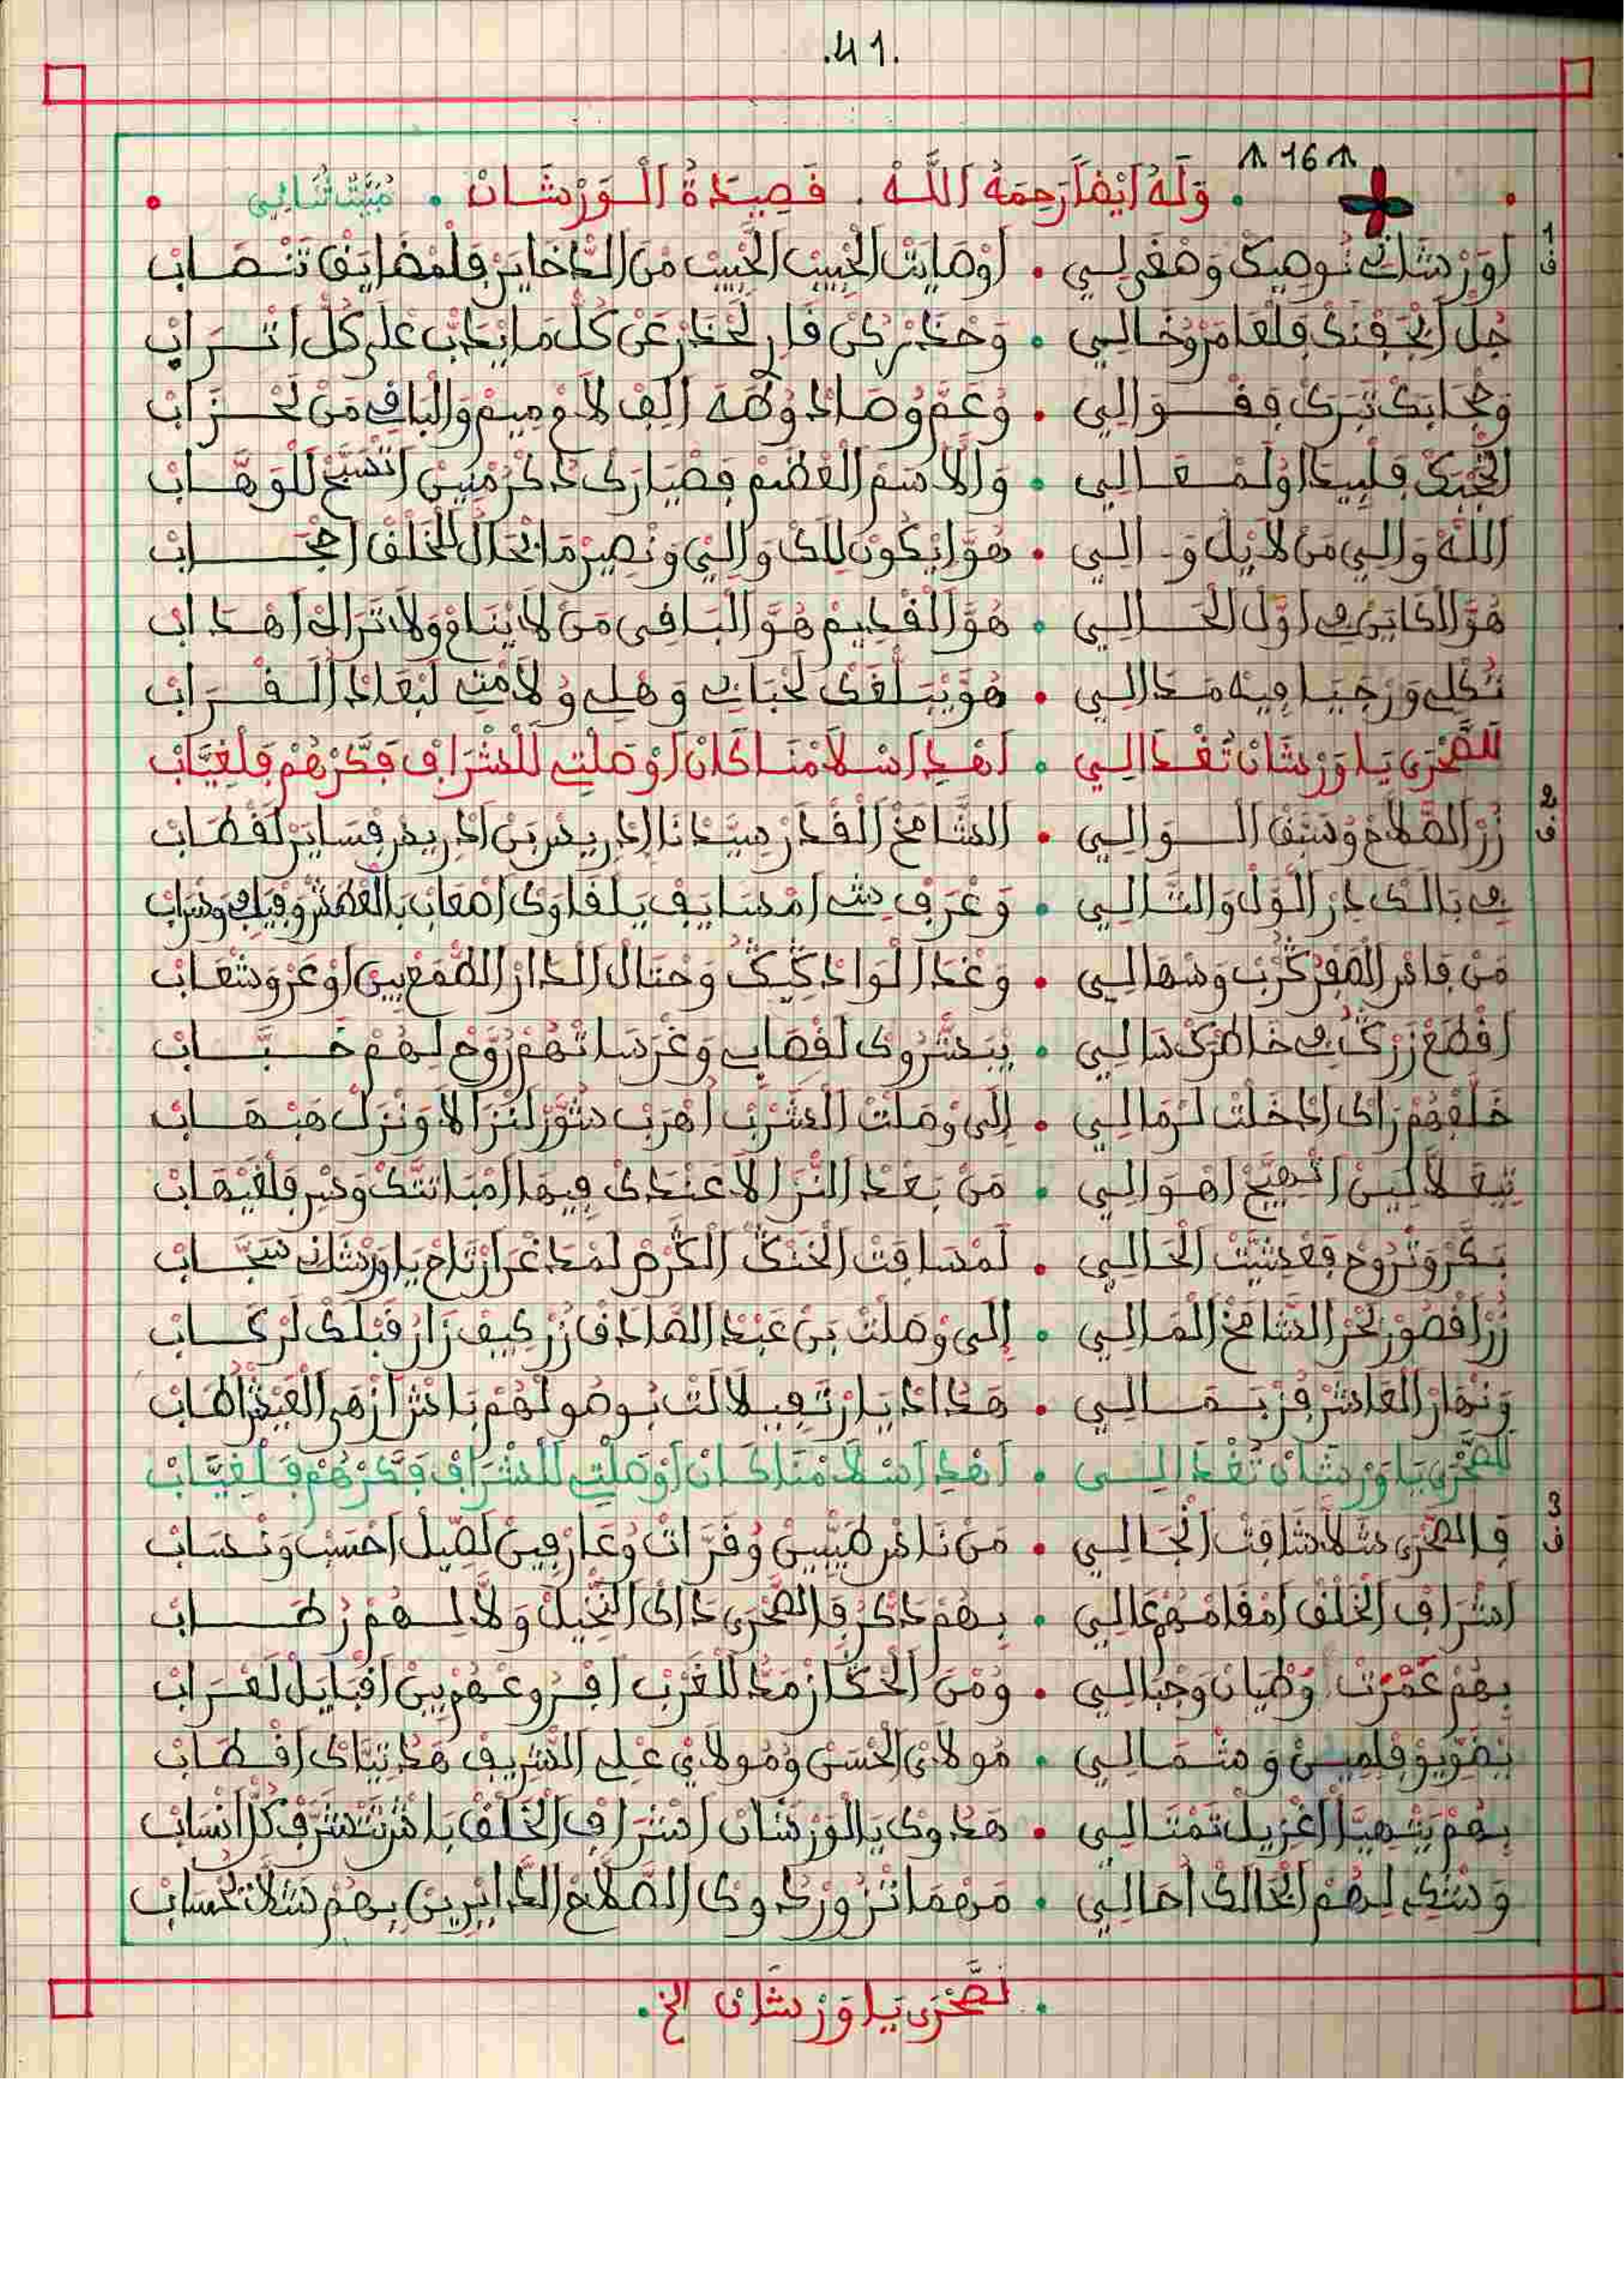 .41.
16
. وَلَهُ اَيْضًا رَحِمَهُ اَللَّهْ . قَصِيدَةُ اَلْوَرْشَانْ . مُبَيَّتْ ثُنَائِي .
1 ف
اَوَرْشَانِي نُوصِيكْ وَصْغَى لِيي . اَوْصَايَتْ اَلْحْبِيبْ الَحْبِيبْ مَنْ اَلدّْخَايَرْ فَلْمْضَايَقْ تَنْصَابْ
جُلْ اَبْجَفْنَكْ فَلْعَامَرْ وُخَالِيي . وَحْضَرْ كُنْ قَارِ لَحْضَرْ عَنْ كُلّْ مَا يْدَبّْ عْلَى كُلّْ اَتْرَابْ
وَحْجَابَكْ تَبَرَكْ فِقْوَالِيي . وُعَمَّ وُصَادْ وُطَهَ اَلِفْ لَامْ مِيمْ وَالْبَاقِي مَنْ لَحْزَابْ
وَالَاسَمْ اَلْعْضَمْ فِضْيَارَكْ دَكْرْ مْنِينْ اَتْسَبَّحْ لَلْوَهَّابْ
اَللَّهْ وَالِيي مَنْ لَا يْلْ وَالِيي . هُوَّ اِيْكُونْ لَكْ وَالِيي وَنْصِيرْ مَا بْحَالُ لَلْخَلْقْ اَحْجَابْ
هُوَّ اَلْكَايَنْ فِي اَوَّلْ اَلْحَالِيي . هُوَّ اَلْقْدِيمْ هُوَّ اَلْبَاقِي مَنْ لَا يْنَامْ وَلَا تْرَاهْ اَهْدَابْ
تُكْلِي وَرْجَيَا فِيهْ مَدَالِيي . هُوَّ يْبَلّْغَكْ لَحْبَابِي وَهْلِي وُلَامْتِي لَبْعَادْ اَلْقْرَابْ
لَلصَّحْرَى يَا وَرْشَانْ تَغْدَالِيي . اَهْدِ اَسْلَامْنَا كَانْ اَوْصَلْتِي لَلشْرَافْ فَكَّرْهُمْ فَلْغِيَّابْ
2 ف
زُرْ اَلصّْلَاحْ وُسَبَّقْ اَلْوَالِيي . اَلشَّامَخْ اَلْقْدَرْ سِيدْنَا اِدْرِيسْ بَنْ اِدْرِيسْ فِسَايَرْ لَقْطَابْ
فِي بَالَكْ دِرْ اَلْوَّلْ وَالتَّالِيي . وَعْرَفْ اَمْسَايَفْ يَلْقَاوَكْ اَصْعَابْ بَالْعْطَشْ
مَنْ فَاسْ اَلصْفْرْ كَرَّبْ وَسْهَالِيي . وَغْدَ اَلْوَادْ وَحْتَالْ اَلْدَارْ اَلطّْمَعْ بِينْ اَوْعَرْ وَشْعَابْ
اَقْطَعْ زَرْكْ فِي خَاطْرَكْ سَالِيي . يْبَشّْرُوكْ لَقْصَابِي وَغْرْسَاتْهُمْ رُوَّحْ لَهُمْ خَبَّابْ
خَلّْفْهُمْ رَاكْ اَدْخَلْتْ لَرْمَالِيي . اِلَى وْصَلْتْ اَلْشْرْبْ اَهْرَبْ شَوَّرْ لَنْزَالَا وَنْزَلْ هَبْهَابْ
اَتْهَيَّجْ اَهْوَالِيي . مَنْ بَعْدْ اَلنّْزَالَا عَنْدَكْ فِيهَا اَمْبَاتْتَكْ وَسْرِ فَلْغَيْهَابْ
بَكَّرْ وَتْرُوحْ فَعْشِيَّتْ اَلْحَالِيي . لَمْسَاقَتْ اَلْخَنْكْ اَلْكَرْسْ لَمْدَغْرَا اَرْتَاحْ يَا وَرْشَانِي سَجَّابْ
زُرْ اَقْصُورْ بَحْرْ اَلشَّامَخْ اَلْمَالِيي . اِلَى وْصَلْتْ بَنْ عَبْدْ اَلصَّادَقْ زُرْ كِيفْ زَارُ قَبْلَكْ لَرْكَابْ
وَنْهَارْ اَلْعَاشَرْ فِزْبَمَالِيي . هَدَادْ يَا اَرْتْفِيلَالَتْ بُوصُولْهُمْ بَاشْ اَزْهَى اَلْعَيْشْ اَطَابْ
لَلصَّحْرَى يَا وَرْشَانْ تَغْدَالِيي . اَهْدِ اَسْلَامْنَا كَانْ اَوْصَلْتِي لَلشْرَافْ فَكَّرْهُمْ فَلْغِيَّابْ
3 ف
فَالصَّحْرَى شَلَّا شَافَتْ اَنْجَالِيي . مَنْ نَاسْ طَيّْبِينْ وُقَرَّاتْ وُعَارْفِينْ لَصِيلْ اَحْسَبْ وَنْسَابْ
اَشْرَافْ اَلْخَلْقْ اَمْقَامْهُمْ عَالِيي . بِهُمْ دَكْرْ فَالصَّحْرَى دَاكْ اَلنّْخِيلْ وَلَّا لْهُمْ رْطَابْ
بِهُمْ عَمْرَتْ وُطْيَانْ وَجْبَالِيي . وُمَنْ اَلْحْكَازْ مَدُّ لَلْغَرْبْ اَفْرُوعْهُمْ بِينْ اَقْبَايَلْ لَعْرَابْ
وَشْمَالِيي . مُولَايْ اَلْحْسَنْ وُمُولَايْ عْلِي اَلشّْرِيفْ هَدْ تِيَّاكْ اَقْطَابْ
بِهُمْ يَشْهِيَّا اَغْزِيلْ تَمْتَالِيي . هَدُوكْ يَالْوَرْشَانْ اَشْرَافْ اَلْخَلْقْ بَاشْ تَتْشَرَّفْ كُلّْ اَنْسَابْ
وَشْكِ لِهُمْ اَبْحَالَكْ اَحَالِيي . مَهْمَا تْزُورْ دُوكْ اَلصّْلَاحْ اَلدَّايْرِينْ بِهُمْ شَلَّا تَحْسَابْ
. لَصَّحْرَى يَا وَرْشَانْ الخ .